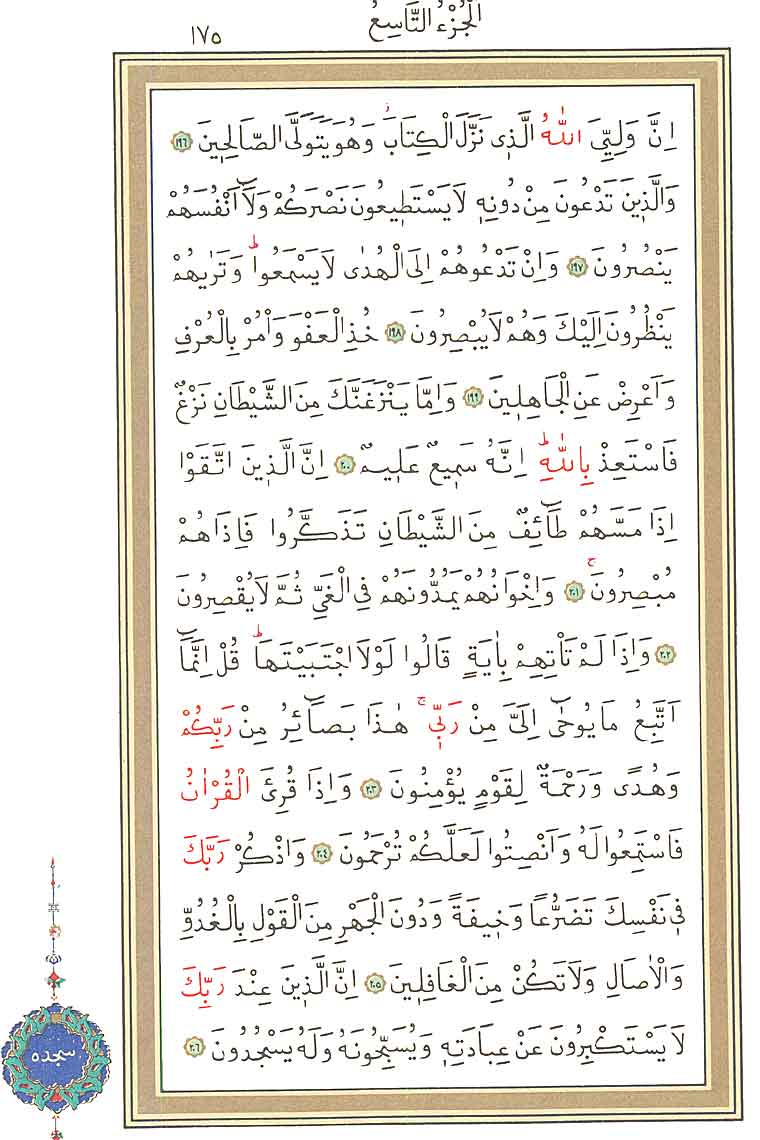 اَلْجُزْءُ التَّاسِعُ
١٧٥
اِنَّ وَلِيِّيَ اللّٰهُ الَّذ۪ي نَزَّلَ الْكِتَابَۘ وَهُوَ يَتَوَلَّى الصَّالِح۪ينَ ١٩٦
وَالَّذ۪ينَ تَدْعُونَ مِنْ دُونِه۪ لَا يَسْتَط۪يعُونَ نَصْرَكُمْ وَلَٓا اَنْفُسَهُمْ
يَنْصُرُونَ ١٩٧ وَاِنْ تَدْعُوهُمْ اِلَى الْهُدٰى لَا يَسْمَعُواۜ وَتَرٰيهُمْ
يَنْظُرُونَ اِلَيْكَ وَهُمْ لَا يُبْصِرُونَ ١٩٨ خُذِ الْعَفْوَ وَأْمُرْ بِالْعُرْفِ
وَاَعْرِضْ عَنِ الْجَاهِل۪ينَ ١٩٩ وَاِمَّا يَنْزَغَنَّكَ مِنَ الشَّيْطَانِ نَزْغٌ
فَاسْتَعِذْ بِاللّٰهِۜ اِنَّهُ سَم۪يعٌ عَل۪يمٌ ٢٠٠ اِنَّ الَّذ۪ينَ اتَّقَوْا
اِذَا مَسَّهُمْ طَٓائِفٌ مِنَ الشَّيْطَانِ تَذَكَّرُوا فَاِذَا هُمْ
مُبْصِرُونَۚ ٢٠١ وَاِخْوَانُهُمْ يَمُدُّونَهُمْ فِي الْغَيِّ ثُمَّ لَا يُقْصِرُونَ
٢٠٢ وَاِذَا لَمْ تَأْتِهِمْ بِاٰيَةٍ قَالُوا لَوْلَا اجْتَبَيْتَهَاۜ قُلْ اِنَّمَٓا
اَتَّبِعُ مَا يُوحٰٓى اِلَيَّ مِنْ رَبّ۪يۚ هٰذَا بَصَٓائِرُ مِنْ رَبِّكُمْ
وَهُدًى وَرَحْمَةٌ لِقَوْمٍ يُؤْمِنُونَ ٢٠٣ وَاِذَا قُرِئَ الْقُرْاٰنُ
فَاسْتَمِعُوا لَهُ وَاَنْصِتُوا لَعَلَّكُمْ تُرْحَمُونَ ٢٠٤ وَاذْكُرْ رَبَّكَ
ف۪ي نَفْسِكَ تَضَرُّعًا وَخ۪يفَةً وَدُونَ الْجَهْرِ مِنَ الْقَوْلِ بِالْغُدُوِّ
وَالْاٰصَالِ وَلَا تَكُنْ مِنَ الْغَافِل۪ينَ ٢٠٥ اِنَّ الَّذ۪ينَ عِنْدَ رَبِّكَ
لَا يَسْتَكْبِرُونَ عَنْ عِبَادَتِه۪ وَيُسَبِّحُونَهُ وَلَهُ يَسْجُدُونَ ٢٠٦
سجده